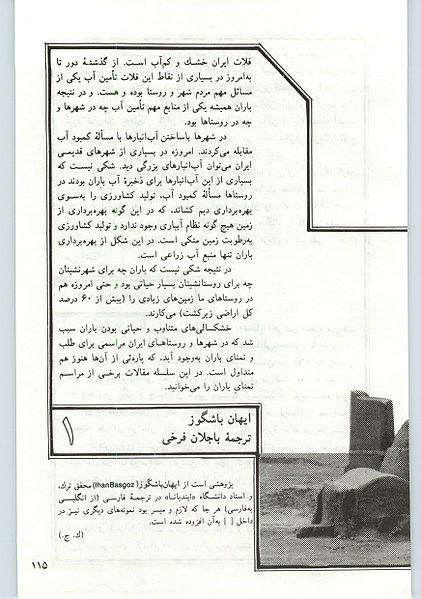 فلات ایران خشك و کم‌آب است. از گذشتهٔ دور تا
به‌امروز در بسیاری از نقاط این فلات تأمین آب یکی از
مسائل مهم مردم شهر و روستا بوده و هست. و در نتیجه
باران همیشه یکی از منابع مهم تأمین آب چه در شهرها و
چه در روستاها بود.
در شهرها باساختن آب‌انبارها با مسألهٔ کمبود آب
مقابله می‌کردند. امروزه در بسیاری از شهرهای قدیمی
ایران می‌توان آب‌انبارهای بزرگی دید. شکی نیست که
بسیاری از این آب‌انبارها برای ذخیرهٔ آب باران بودند در
روستاها مسألهٔ کمبود آب، تولید کشاورزی را به‌سوی
بهره‌برداری دیم کشاند، که در این گونه بهره‌برداری از
زمین هیچ گونه نظام آبیاری وجود ندارد و تولید کشاورزی
به‌رطوبت زمین متکی است. در این شکل از بهره‌برداری
باران تنها منبع آب زراعی است.
در نتیجه شکی نیست که باران چه برای شهرنشینان
چه برای روستانشینان بسیار حیاتی بود و حتی امروزه هم
در روستاهای ما زمین‌های زیادی را (بیش از ۶۰ درصد
کل اراضی زیرکشت) می‌کارند.
خشکسالی‌های متناوب و حیاتی بودن باران سبب
شد که در شهرها و روستاهای ایران مراسمی برای طلب
و تمنای باران به‌وجود آید، که پاره‌ئی از آن‌ها هنوز هم
متداول است. در این سلسله مقالات برخی از مراسم
تمنای باران را می‌خوانید.
ایهان باشگوز
ترجمهٔ باجلان فرخی
۱
پژوهشی است از ایهان‌باشگوز (IlhanBasgoz) محقق ترك،
و استاد دانشگاه «ایندیانا» در ترجمهٔ فارسی (از انگلیسی
به‌فارسی) هر جا که لازم و میسر بود نمونه‌های دیگری نیـز در
داخل [ ] به‌آن افزوده شده است.
(ك. ج.)
۱۱۵